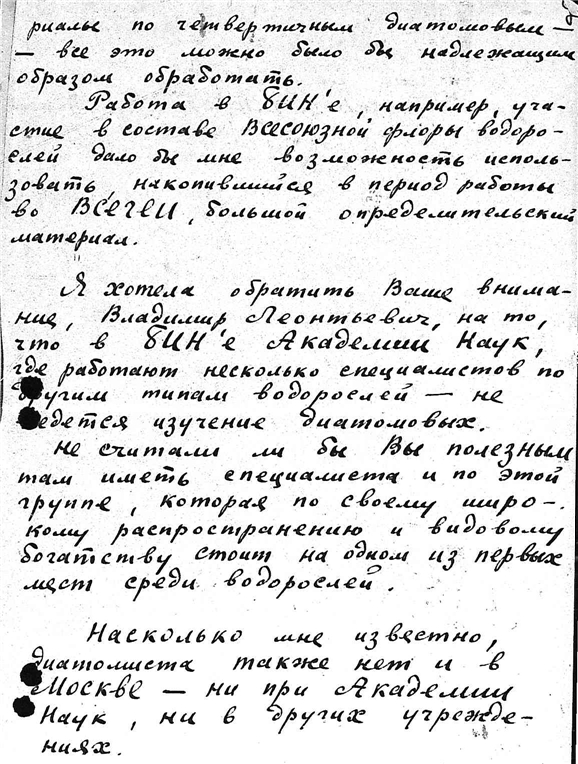 риалы по четвертичным диатомовым —
— все это можно было бы надлежащим
образом обработать.
Работа в БИН'е, например, уча-
стие в составе Всесоюзной флоры водоро-
слей дало бы мне возможность исполь-
зовать, накопившийся в период работы
во ВСЕГЕИ, большой определительский
материал.
Я хотела обратить Ваше внима-
ние, Владимир Леонтьевич, на то,
что в БИН'е Академии Наук,
где работают несколько специалистов по
другим типам водорослей — не
ведется изучение диатомовых.
Не считали ли бы Вы полезным
там иметь специалиста и по этой
группе, которая по своему широ-
кому распространению и видовому
богатству стоит на одном из первых
мест среди водорослей.
Насколько мне известно,
диатомиста также нет и в
Москве — ни при Академии
Наук, ни в других учрежде-
ниях.